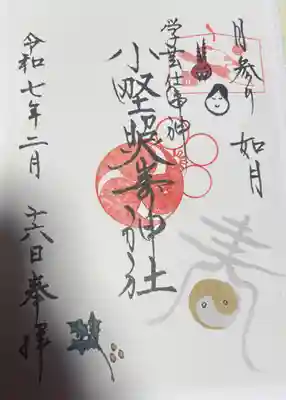 月参り 如月
学芸仕事神
小野照崎神社
令和七年二月
十六日奉拝
寿